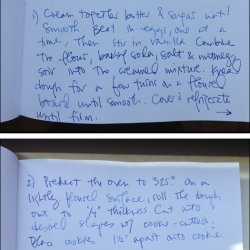 1) Cream together butter & sugars until
smooth. Beat in eggs, one at a
time, Then stir in vanilla. Combine
The flour, baking soda, salt & nutmeg
stir into The creamed mixture. Knead
dough for a few turns on a floured
board until smooth. Cover & refrigerate
until firm. →
2) Preheat the oven to 325° On a
lightly floured surface, roll the dough
out to 1/4" thickness. Cut into
desired shapes w/ cookie-cutters.
Place cookies 1 1/2" apart onto cookie